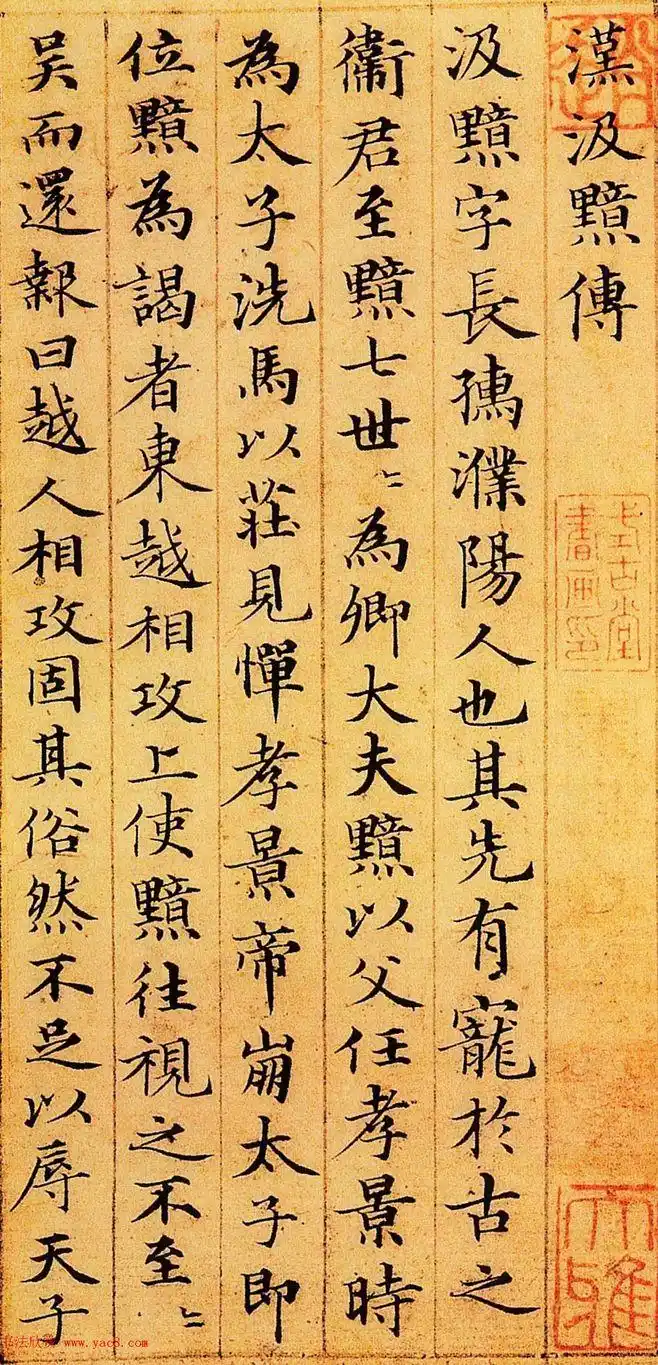 漢汲黯傳
汲黯字長孺濮陽人也其先有寵於古之
衛君至黯七世〻為卿大夫黯以父任孝景時
為太子洗馬以莊見憚孝景帝崩太子即
位黯為謁者東越相攻上使黯往視之不至〻
吳而還報曰越人相攻固其俗然不足以辱天子
式古堂書画印
大雅
www.yac8.com